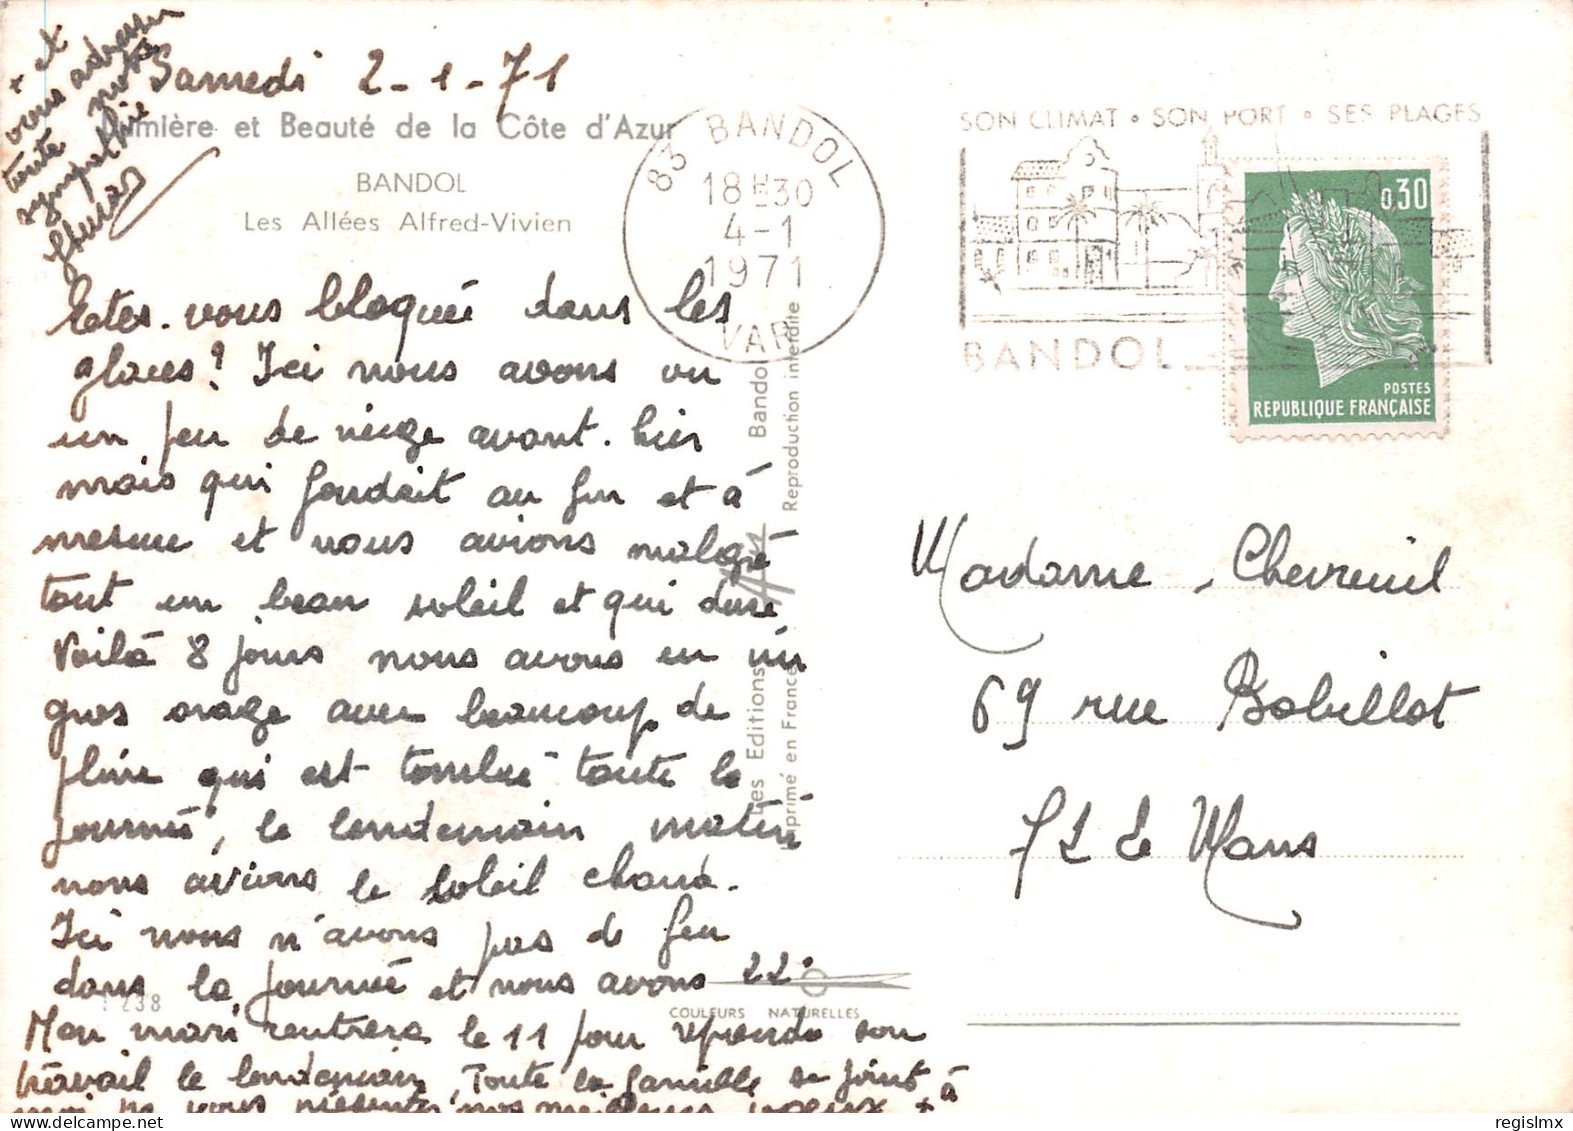 Samedi 2-1-71
Lumière et Beauté de la Côte d'Azur
BANDOL
Les Allées Alfred-Vivien
Etes-vous bloquée dans les
glaces? Ici nous avons vu
un peu de neige avant-hier
mais qui fondait au fur et à
mesure et nous avions malgré
tout un beau soleil et qui dure
Voilà 8 jours nous avons eu un
gros orage avec beaucoup de
pluie qui est tombée toute la
journée, le lendemain matin
nous avions le soleil chaud.
Ici nous n'avons pas de feu
dans la journée et nous avons 22°
Mon mari rentrera le 11 pour reprendre son
travail le lendemain, Toute la famille se joint à
moi pr vous présenter nos meilleurs voeux +
+ et
vous adresser
toute notre
sympathie
1 238
Les Editions Bandol
Imprimé en France Reproduction interdite
COULEURS NATURELLES
83 BANDOL
18H30
4-1
1971
VAR
SON CLIMAT • SON PORT • SES PLAGES
BANDOL
0,30
POSTES
REPUBLIQUE FRANÇAISE
Madame Chevreuil
69 rue Bobillot
72 Le Mans
regislmx